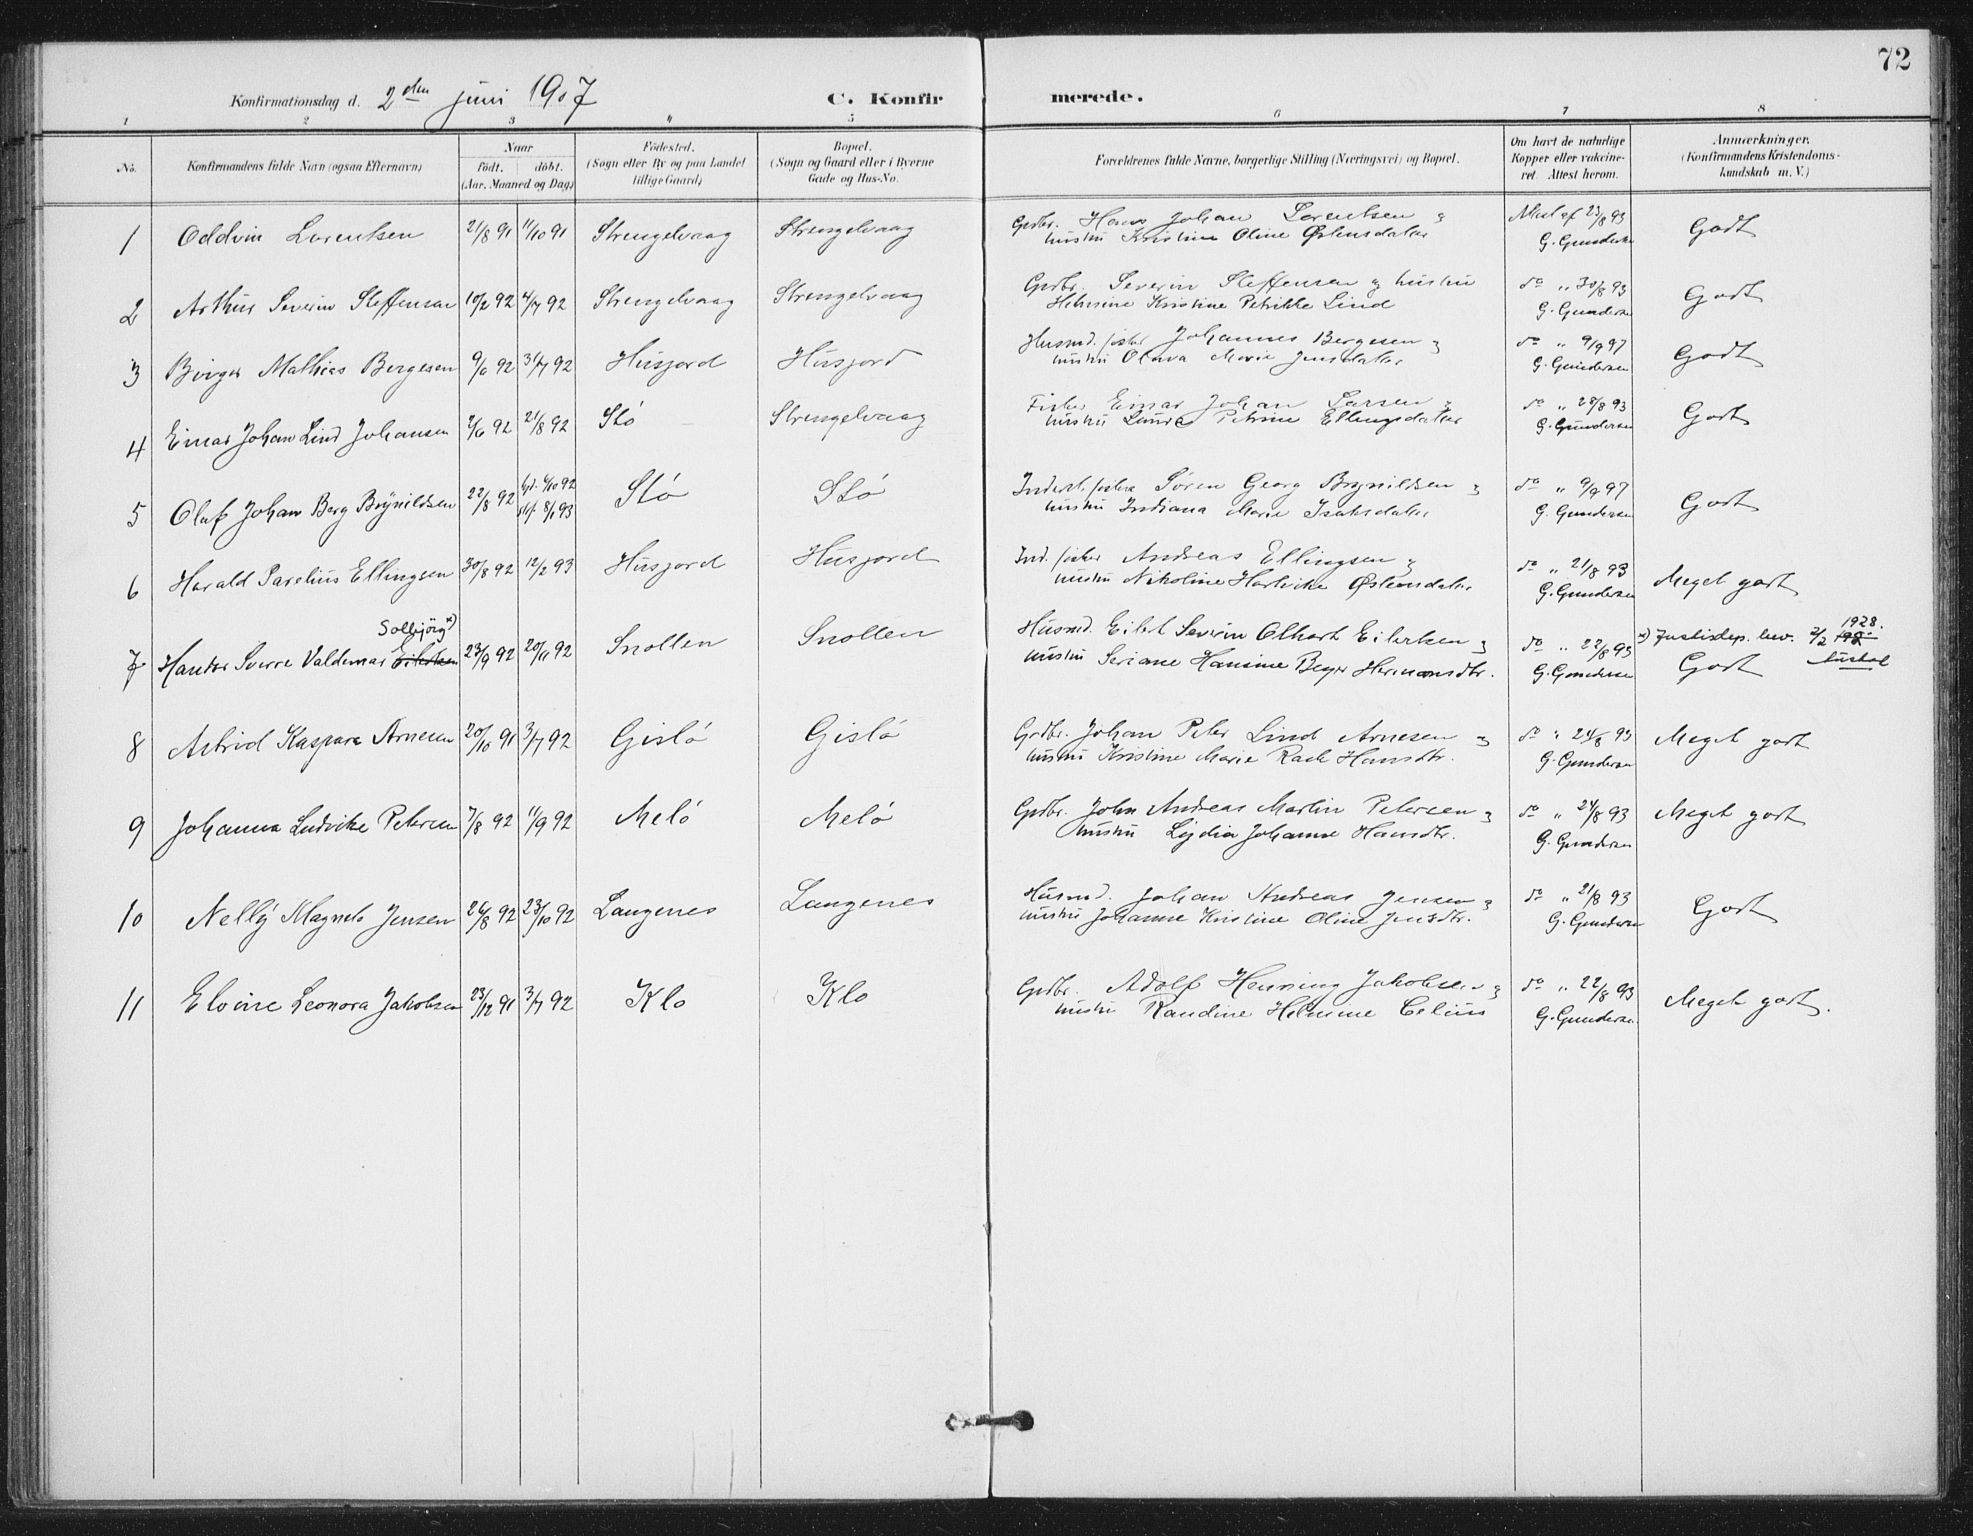 72
Konfirmationsdag d. 2den juni 1907 C. Konfirmerede.
1 2 3 4 5 6 7 8
No. Konfirmandens fulde Navn (ogsaa Efternavn) Naar födt. döbt. (Aar, Maaned og Dag) Födested. (Sogn eller By og paa Landet tillige Gaard) Bopæl. (Sogn og Gaard eller i Byerne Gade og Hus-No. Forældrenes fulde Navne, borgerlige Stilling (Næringsvei) og Bopæl. Om havt de naturlige Kopper eller vakcineret. Attest herom. Anmærkninger. (Konfirmandens Kristendomskundskab m. V.)
1 Oddvin Lorentsen 21/8 91 11/10 91 Strengelvaag Strengelvaag Grdbr. Hans Johan Lorentsen og Attest af 23/8 93 Godt
hustru Kristine Oline Østensdatter G. Gundersen
2 Arthur Severin Steffensen 10/2 92 4/7 92 Strengelvaag Strengelvaag Grdbr. Severin Steffensen og hustru do " 30/8 93 Godt
Kristine Petrikke Lind G. Gundersen
3 Birger Mathias Bergesen 92 31/7 92 Husjord Husjord Husmd. fisker Johannes Bergesen og do " 9/9 97 Godt
hustru Olava Marie Jensdatter G. Gundersen
4 Einar Johan Lind Johansen 92 21/8 92 Stö Strengelvaag Fisker Einar Johan Larsen og do " 28/8 93 Godt
hustru Laura Petrine Ellingsdatter G. Gundersen
5 Olaf Johan Berg Brynildsen 22/8 92 4/10 92 8/1 93 Stö Stö Inderst. fisker Søren Georg Brynildsen og do " 9/9 97 Godt
hustru Indiana Marie Isaksdatter G. Gundersen
6 Harald Parelius Ellingsen 30/8 92 12/2 93 Husjord Husjord Ind. fisker Andreas Ellingsen og do " 21/8 93 Meget godt
hustru Nikoline Hartvikke Østensdatter G. Gundersen
Solbjörg x)
7 Handor Sverre Valdemar Eilertsen 23/9 92 20/11 92 Snollen Snollen Husmd. Eilert Severin Olhart Eilertsen og do " 22/8 93 x) Justisdep. bev. 2/2 1928.
hustru Seriane Hansine Beyer Hermansdtr. G. Gundersen Godt
8 Astrid Kaspara Arnesen 20/10 91 3/7 92 Gislö Gislö Grdbr. Johan Peter Lind Arnesen og do " 24/8 93 Meget godt
hustru Kristine Marie Rack Hansdtr. G. Gundersen
9 Johanna Ludvikke Petersen 7/8 92 11/9 92 Melö Melö Grdbr. John Andreas Martin Petersen og do " 24/8 93 Meget godt
hustru Lydia Johanne Hansdtr. G. Gundersen
10 Nelly Magnela Jensen 26/8 92 23/10 92 Langenes Langenes Husmd. Johan Andreas Jensen og do " 21/8 93 Godt
hustru Johanne Kristine Oline Jensdtr. G. Gundersen
11 Elvine Leonora Jakobsen 23/12 91 3/7 92 Klo Klo Grdbr. Adolf Henning Jakobsen og do " 22/8 93 Meget godt.
hustru Randine Helmine Celius G. Gundersen